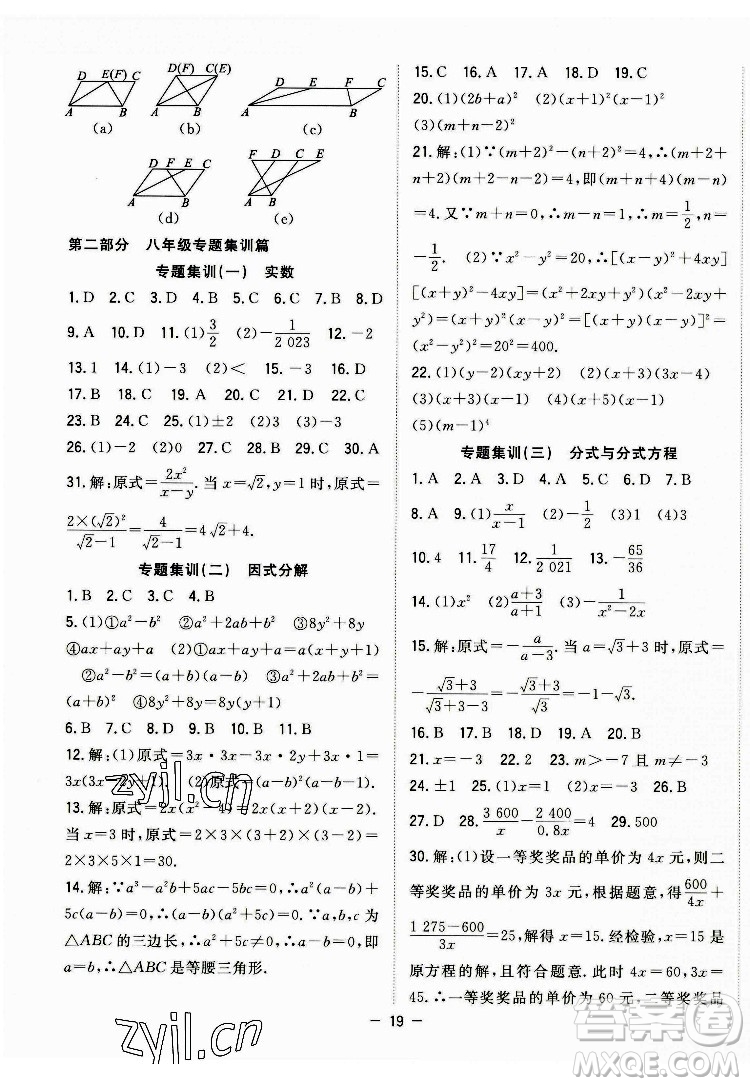 D E(F) C D(F) C(E) D E F C
A B A B A B
(a) (b) (c)
D F E C F D C E
A B A B
(d) (e)
第二部分 八年级专题集训篇
专题集训(一) 实数
1. D 2. C 3. C 4. D 5. C 6. C 7. B 8. D
9. A 10. D 11. (1)3/2 (2)-1/2 023 12. -2
13. 1 14. (1)-3 (2)< 15. -3 16. D
17. B 18. D 19. D 20. C 21. A 22. C
23. B 24. C 25. (1)±2 (2)3 (3)-3
26. (1)-2 (2)0 27. B 28. B 29. C 30. A
31. 解:原式=2x²/(x-y). 当 x=√2, y=1 时, 原式=
2×(√2)²/(√2-1)=4/(√2-1)=4√2+4.
专题集训(二) 因式分解
1. B 2. C 3. C 4. B
5. (1)①a²-b² ②a²+2ab+b² ③8y²+8y
④ax+ay+a (2)①ax+ay+a=a(x+y+1)
②a²-b²=(a+b)(a-b) ③a²+2ab+b²=
(a+b)² ④8y²+8y=8y(y+1)
6. B 7. B 8. D 9. B 10. B 11. B
3x(3x-
当 x=3 时,原式=2×3×(3+2)×(3-2)=
2×3×5×1=30.
14. 解:∵a²-b²+5ac-5bc=0,∴(a+b)(a-b)+
5c(a-b)=0,∴(a-b)(a+b+5c)=0,∵a,b,c为
△ABC 的三边长,∴a+b+5c≠0,∴a-b=0,即
a=b,∴△ABC 是等腰三角形.
zyjl.cn
zyjl.cn
15. C 16. A 17. B 18. D 19. C
20. (1)(2b+a)² (2)(x+1)²(x-1)²
(3)(m+n-2)²
21. 解:(1)∵(m+2)²-(n+2)²=4,∴(m+2+
n+2)(m+2-n-2)=4,即(m+n+4)(m-n)
=4. 又∵m+n=4,∴m-n=1/2,∴n-m=
-1/2. (2)∵x²-y²=20,∴原式=[(x+y)²+4xy]
[(x+y)²-4xy+2xy-2xy]
22. (1)(y-2)(y+1) (2)(x+3)(x-4)
(3)(x+3)(x-1) (4)(x+1)(x+2)(x-5)
(5)(m-1)⁴
专题集训(三) 分式与分式方程
1. A 2. A 3. D 4. A 5. D 6. A 7. B
8. A 9. (1)x/(x-1) (2)-1/a (3)1 (4)3
10. 4 11. 17/4 12. 1/2 021 13. -65/36
14. (1)x² (2)(a+3)/(a+1) (3)-1/(x²-x)
15. 解:原式=-a/(a-3). 当 a=√3+3 时,原式=
-(√3+3)/(√3+3-3)=-(√3+3)/√3=-1-√3.
16. B 17. A 18. B 19. D 20. B
21. x=-3 22. D 23. m>-7 且 m≠-3
24. ±1 25. (1)x=4 (2)无解 26. B
27. D 28. 3 600/x-2 400/0.8x=4 29. 500
30. 解:(1)设一等奖奖品的单价为 4x 元,则二
等奖奖品的单价为 3x 元,根据题意,得600/4x+
(1 275-600)/3x=25,解得 x=15. 经检验,x=15 是
原方程的解,且符合题意. 此时 4x=60,3x=
45. ∴一等奖奖品的单价为 60 元,二等奖奖品
- 19 -
答案圈
MXQE.COM